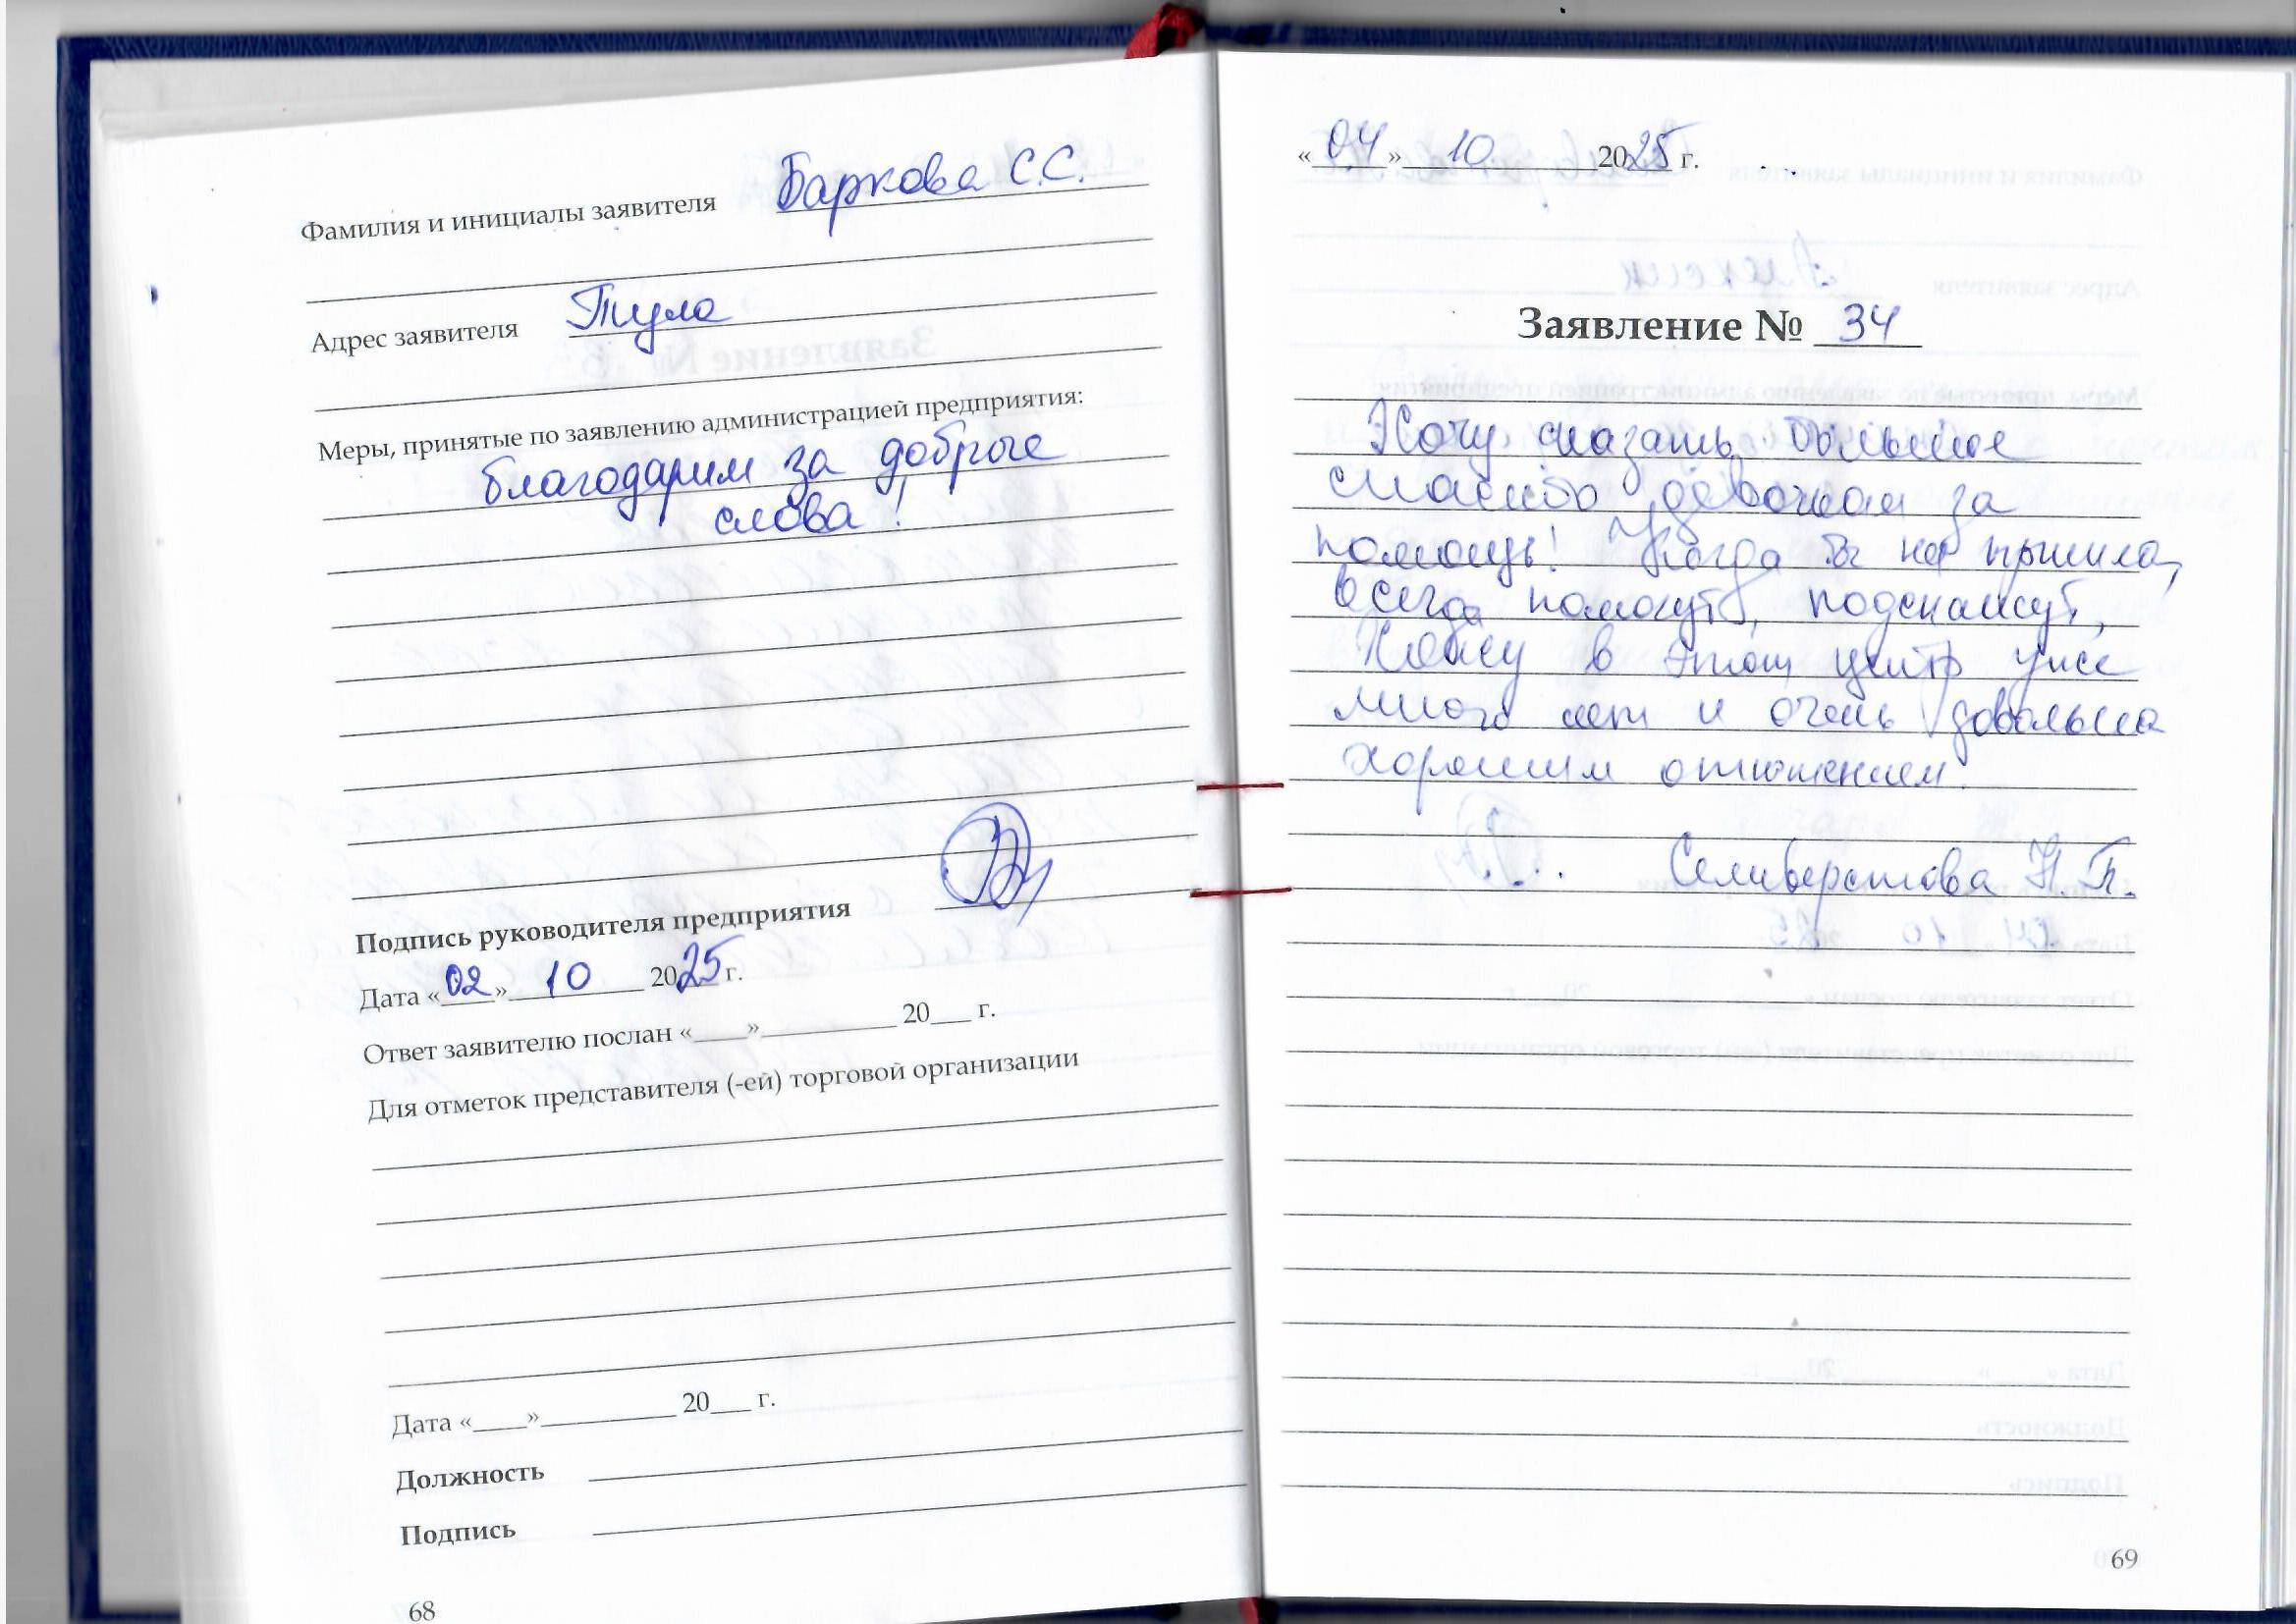 Фамилия и инициалы заявителя Баркова С.С.
Адрес заявителя Тула
Меры, принятые по заявлению администрацией предприятия:
благодарим за доброе
слова!
Подпись руководителя предприятия
Дата «02» 10 2025 г.
Ответ заявителю послан «____»__________ 20___ г.
Для отметок представителя (-ей) торговой организации
Дата «____»__________ 20___ г.
Должность
Подпись
68
«04» 10 2025 г.
Заявление № 34
Хочу сказать большое
спасибо девочкам за
помощь! Когда бы не пришла,
всегда помогут, подскажут,
Хожу в этот центр уже
много лет и очень довольна
хорошим отношением.
Селиверстова Н.П.
69